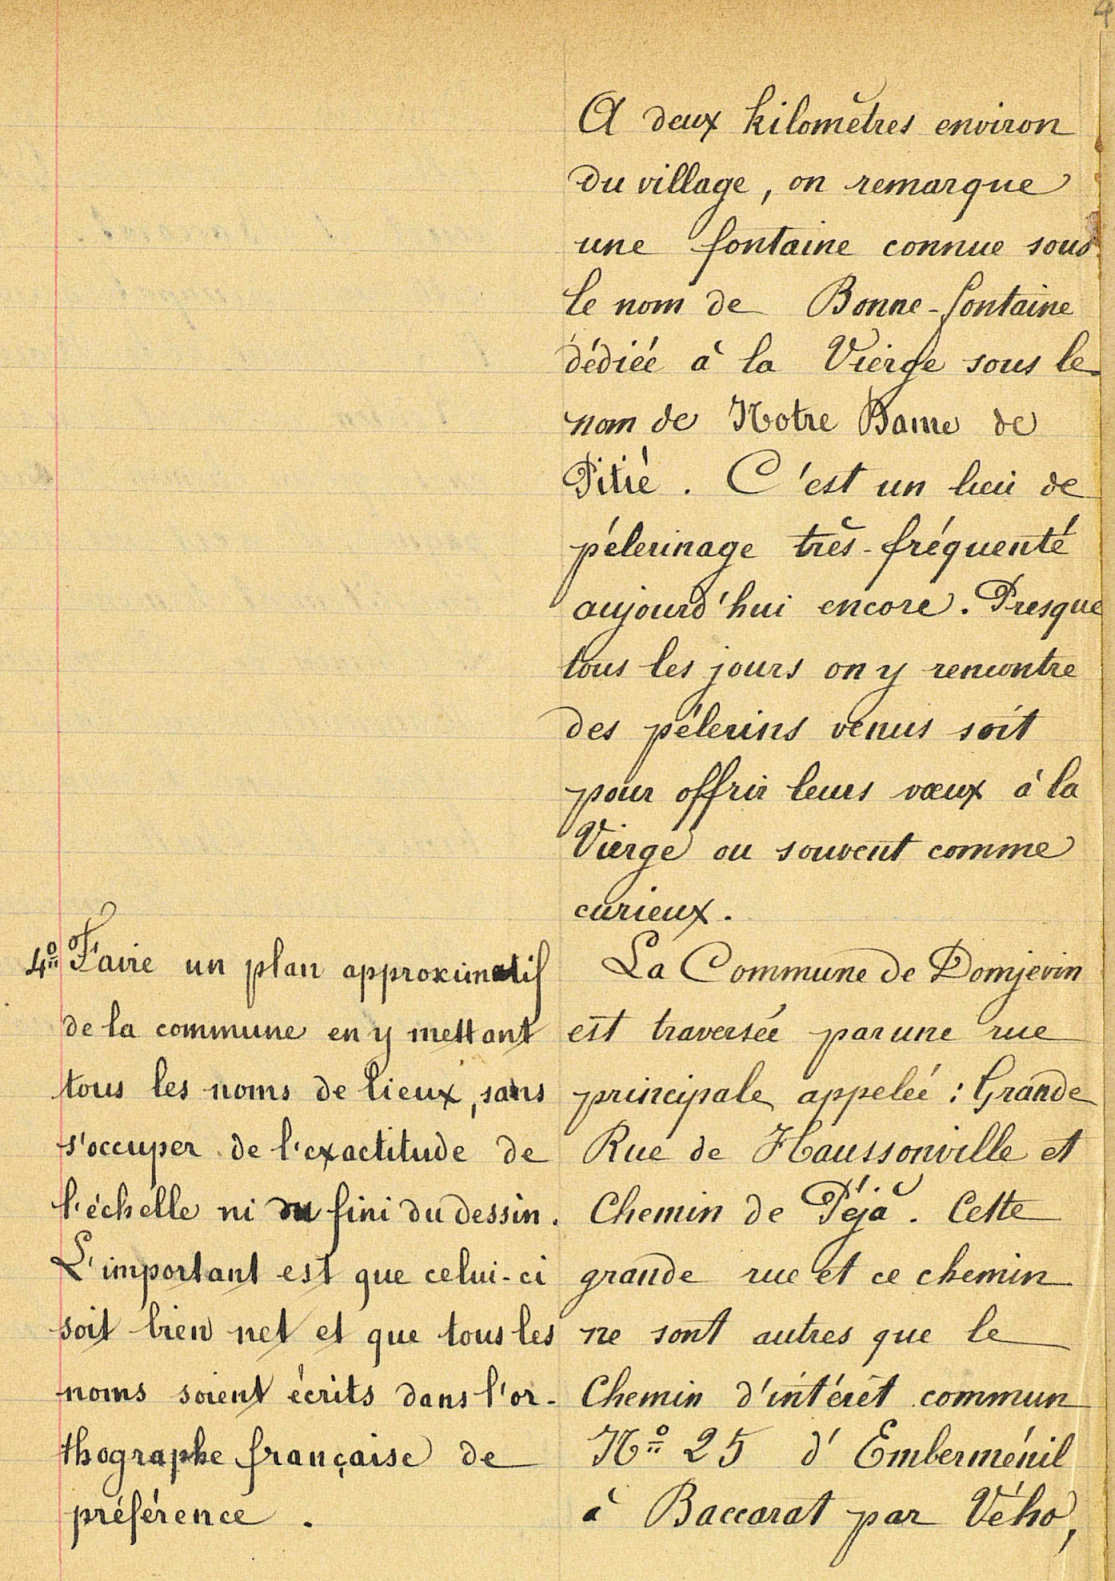 4
A deux kilomètres environ
du village, on remarque
une fontaine connue sous
le nom de Bonne-fontaine
dédiée à la Vierge sous le
nom de Notre Dame de
Pitié. C'est un lieu de
pélerinage très-fréquenté
aujourd'hui encore. Presque
tous les jours on y rencontre
des pélerins venus soit
pour offrir leurs vœux à la
Vierge ou souvent comme
curieux.
4º Faire un plan approximatif
de la commune en y mettant
tous les noms de lieux, sans
s'occuper de l'exactitude de
l'échelle ni du fini du dessin.
L'important est que celui-ci
soit bien net et que tous les
noms soient écrits dans l'or-
thographe française de
préférence.
La Commune de Domjevin
est traversée par une rue
principale appelée : Grande
Rue de Haussonville et
Chemin de Péjà. Cette
grande rue et ce chemin
ne sont autres que le
Chemin d'intérêt commun
Nº 25 d'Emberménil
à Baccarat par Vého,